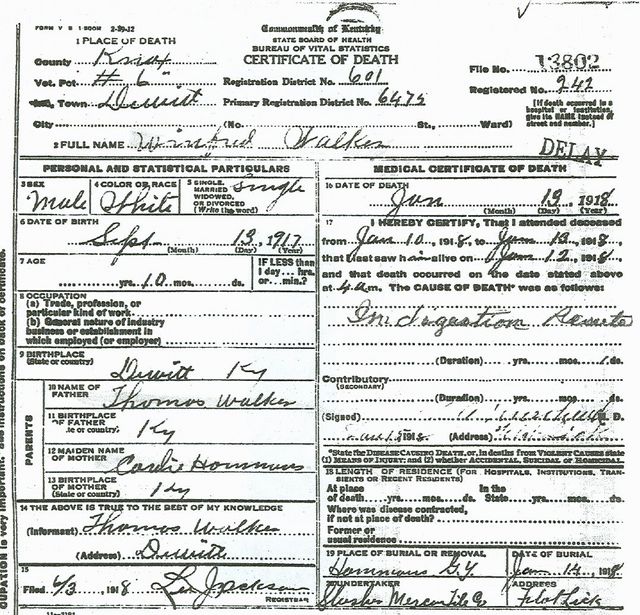 FORM V S 1-500M 2-29-12
Commonwealth of Kentucky
STATE BOARD OF HEALTH
BUREAU OF VITAL STATISTICS
CERTIFICATE OF DEATH
1 PLACE OF DEATH
County Knox
Vot. Pct # 6
Town Dewitt
City (No. St., Ward)
Registration District No. 601
Primary Registration District No. 6475
File No. 13802
Registered No. 242
[If death occurred in a hospital or institution, give its NAME instead of street and number.]
2 FULL NAME Winfred Walker
DELAY
PERSONAL AND STATISTICAL PARTICULARS
3 SEX Male
4 COLOR OR RACE White
5 SINGLE, MARRIED, WIDOWED, OR DIVORCED (Write the word) Single
6 DATE OF BIRTH
Sept 13, 1917
(Month) (Day) (Year)
7 AGE
yrs. 10 mos. ds.
IF LESS than 1 day... hrs. or... min.?
8 OCCUPATION
(a) Trade, profession, or particular kind of work
(b) General nature of industry
business or establishment in
which employed (or employer)
9 BIRTHPLACE
(State or country) Dewitt Ky
PARENTS
10 NAME OF FATHER Thomas Walker
11 BIRTHPLACE OF FATHER
Ky
12 MAIDEN NAME OF MOTHER Hommous
13 BIRTHPLACE OF MOTHER
(State or country) Ky
14 THE ABOVE IS TRUE TO THE BEST OF MY KNOWLEDGE
(Informant) Thomas Walker
(Address) Dewitt
15
Filed 6/3, 1918 Jackson
REGISTRAR
MEDICAL CERTIFICATE OF DEATH
16 DATE OF DEATH
Jan 13 1918
(Month) (Day) (Year)
17 I HEREBY CERTIFY, That I attended deceased
from Jan 10, 1918, to Jan 13, 1918,
that I last saw him alive on Jan 12, 1918,
and that death occurred on the date stated above
at 4 a.m. The CAUSE OF DEATH* was as follows:
Indigestion Acute
(Duration) yrs. mos. 1 ds.
Contributory
(SECONDARY)
(Duration) yrs. mos. ds.
(Signed) M. D.
1918. (Address)
*State the DISEASE CAUSING DEATH, or, in deaths from VIOLENT CAUSES state
(1) MEANS OF INJURY; and (2) whether ACCIDENTAL, SUICIDAL or HOMICIDAL.
18 LENGTH OF RESIDENCE (FOR HOSPITALS, INSTITUTIONS, TRANSIENTS OR RECENT RESIDENTS)
At place of death yrs. mos. ds. In the State yrs. mos. ds.
Where was disease contracted,
if not at place of death?
Former or
usual residence
19 PLACE OF BURIAL OR REMOVAL
Hommous G.Y.
DATE OF BURIAL
Jan 14, 1918
20 UNDERTAKER
Slusher Mercantile Co
ADDRESS
Flat Lick